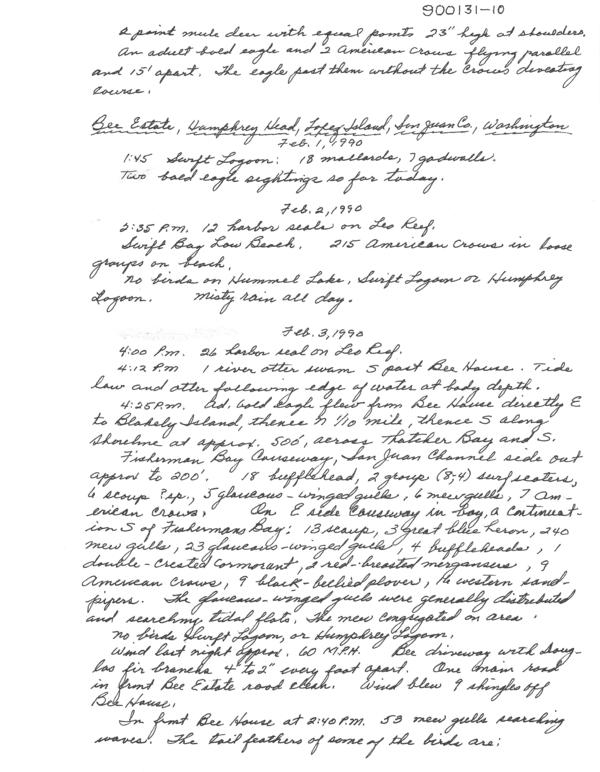 900131-10
2 point mule deer with equal points 23" high at shoulders.
An adult bald eagle and 2 American Crows flying parallel
and 15' apart. The eagle past them without the Crows
course.
Bee Estate, Humphrey Head, Lopez Island, San Juan Co., Washington
Feb. 1, 1990
1:45 Swift Lagoon: 18 mallards, 7 gadwalls.
Two bald eagle sightings so far today.
Feb. 2, 1990
5:35 P.m. 12 harbor seals on Leo Reef.
Swift Bay Low Beach. 215 American Crows in loose
groups on beach.
No birds on Hummel Lake, Swift Lagoon or Humphrey
Lagoon. Misty rain all day.
Feb. 3, 1990
4:00 P.m. 26 harbor seal on Leo Reef.
4:12 P.m 1 river otter swam S past Bee House. Tide
low and otter following edge of water at body depth.
4:25 P.m. Ad. bald eagle flew from Bee House directly E
to Blakely Island, thence N 1/10 mile, thence S along
shoreline at approx. 500', across Thatcher Bay and S.
Fisherman Bay Causeway, San Juan Channel side out
approx to 200'. 18 bufflehead, 2 group (8;4) surf scoters,
6 scaup ?sp., 5 glaucous-winged gulls, 6 mew gulls, 7 Am-
erican crows. On E side Causeway in bay, a continuat-
ion S of Fishermans Bay: 13 scaup, 3 great blue heron, 240
mew gulls, 23 glaucous-winged gulls, 4 buffleheads, 1
double-crested cormorant, 2 red-breasted mergansers, 9
American crows, 9 black-bellied plover, 16 western sand-
pipers. The glaucous-winged gulls were generally distributed
and searching tidal flats. The mew congregated on area.
No birds Swift Lagoon, or Humphrey Lagoon.
Wind last night approx. 60 M.P.H. Bee driveway with Doug-
las fir branchs 4" to 2" every foot apart. One main road
in front Bee Estate road clean. Wind blew 9 shingles off
Bee House.
In front Bee House at 2:40 P.m. 53 mew gulls searching
waves. The tail feathers of some of the birds are: